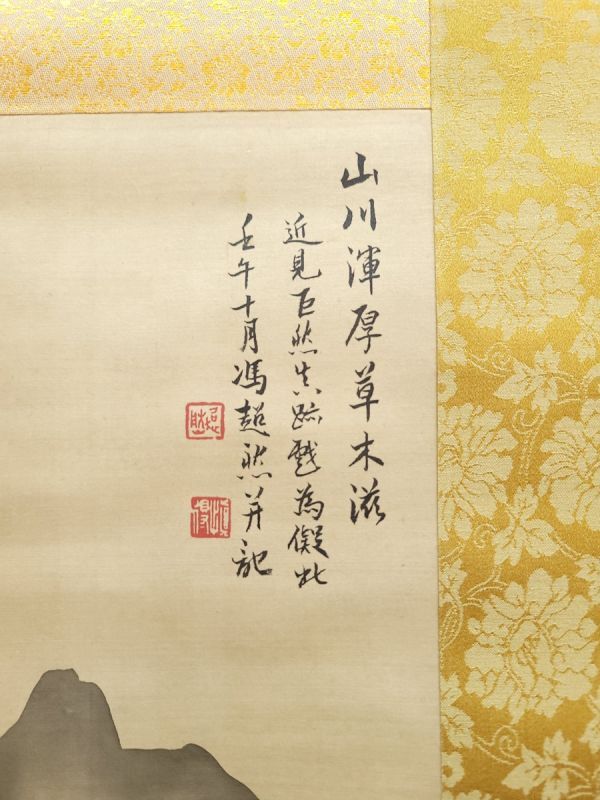 山川渾厚草木滋
近見巨然真跡戲為儗此
壬午十月馮超然并記
超然